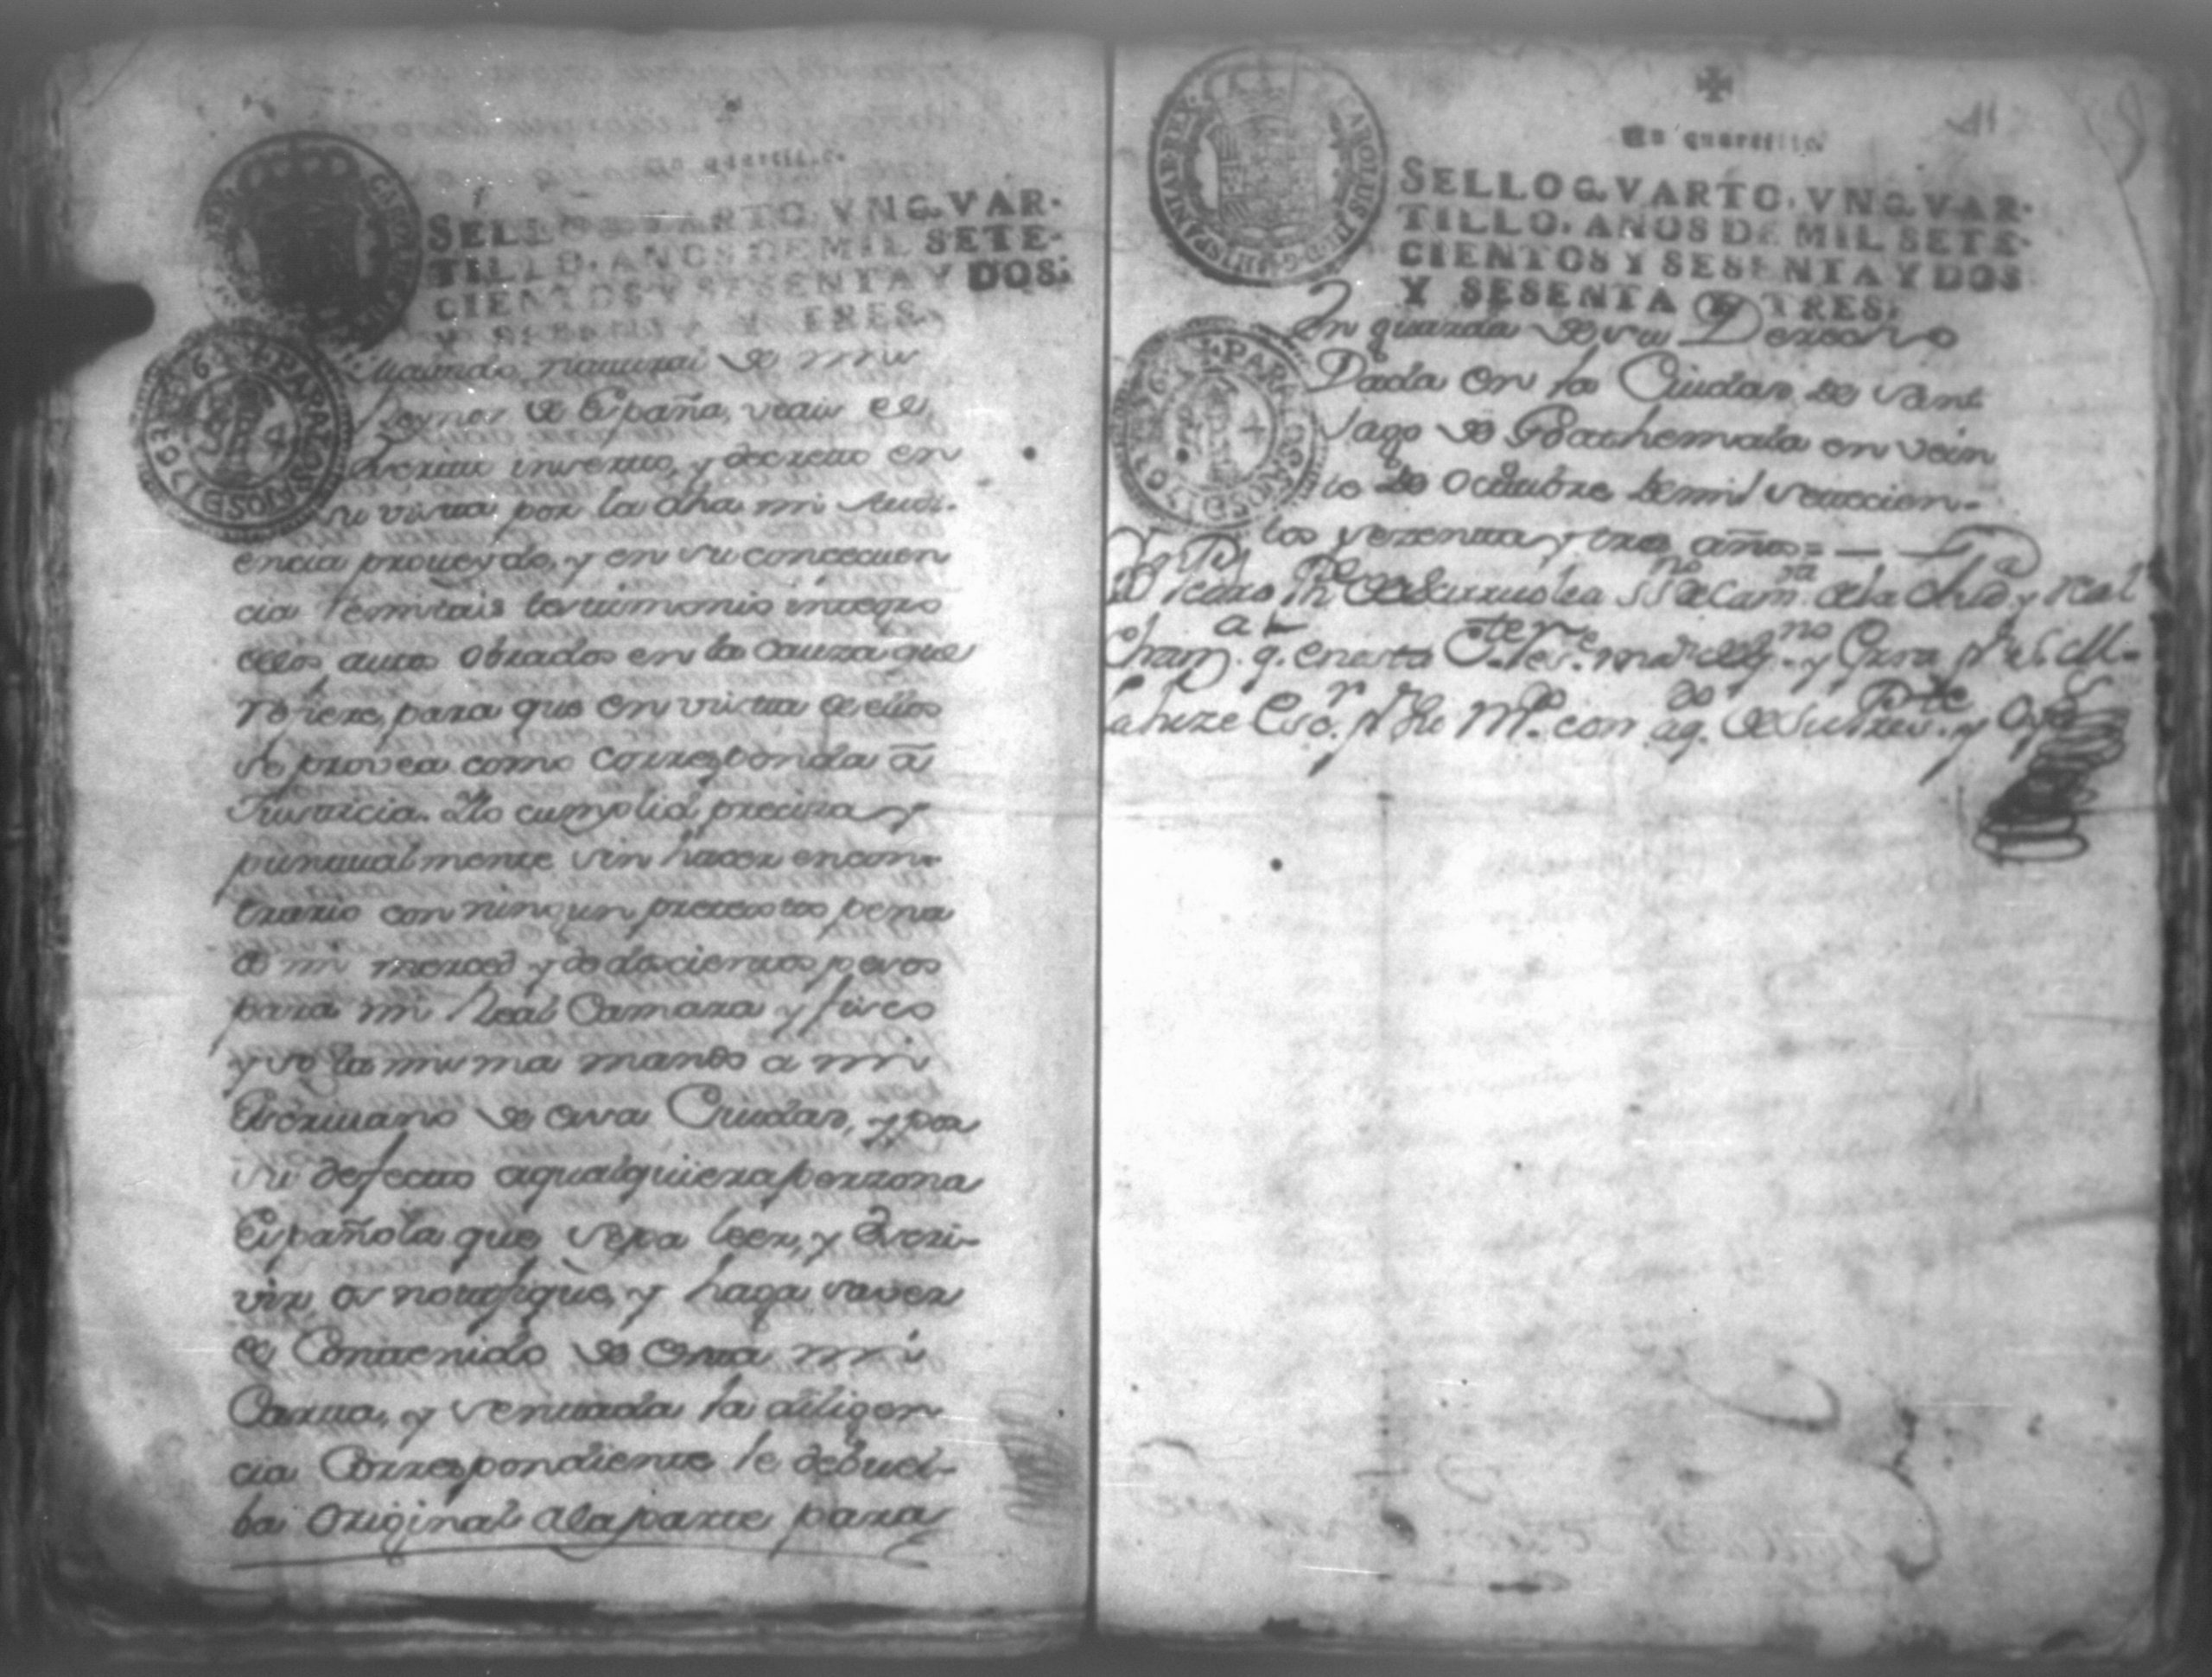 Un quartillo.
SELLO QVARTO, VN QVAR-
TILLO, AÑOS DE MIL SETE-
CIENTOS Y SESENTA Y DOS,
Y SESENTA Y TRES.
natural de mis
Reynos de España, veais el
escritto inserto, y decretto en
su vista por la dha mi Audi-
encia proueydo, y en su concecuen
cia remitais testimonio integro
de los autos obrados en la causa que
refiere, para que en vista de ellos
se provea como corresponda â
Justicia. Lo cumplid precisa y
puntualmente sin hacer encon-
trario con ningun pretexto pena
de mi merced y de doscientos pesos
para mi Real Camara y fisco
y so la misma mando a mi
Escriuano de esa Ciudad, y por
su defecto aqualquiera perzona
Española que sepa leer, y escri-
vir, os notifique, y haga saver
el Contenido de esta mi
Carta, y sentada la diligen
cia Correspondiente le debuel-
ba Original ala parte para
Un quartillo.
11
SELLO QVARTO, VN QVAR-
TILLO, AÑOS DE MIL SETE-
CIENTOS Y SESENTA Y DOS
Y SESENTA Y TRES.
CAROLUS D G HISPANIAR REX
En guarda de su Derecho
Dada en la Ciudad de Sant
iago de Goathemala en vein
te de Octubre de mil setecien-
tos y sesenta y tres años=
real
Cham
la hize Esc. con